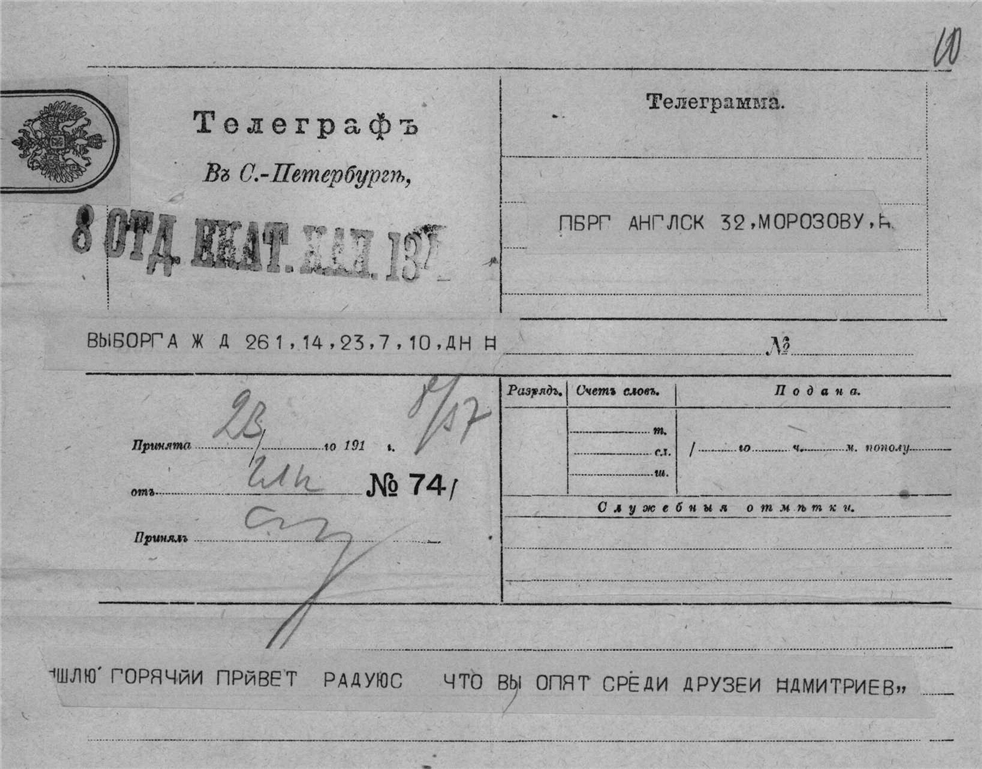 10
Телеграфъ
Въ С.-Петербургѣ,
8 ОТД. ЕКАТ. КАН. 13
Телеграмма.
ПБРГ АНГЛСК 32,МОРОЗОВУ,Н
ВЫБОРГА Ж Д 261,14,23,7,10,ДН Н
№
Принята 23/ го 191 г. 8/57
отъ № 74/
Принялъ
Разрядъ. Счетъ словъ. Подана.
т.
сл.
ш.
/ го ч. м. пополу
Служебныя отмѣтки.
ШЛЮ ГОРЯЧЙИ ПРЙВЕТ РАДУЮС ЧТО ВЫ ОПЯТ СРЕДИ ДРУЗЕИ НДМИТРИЕВ„